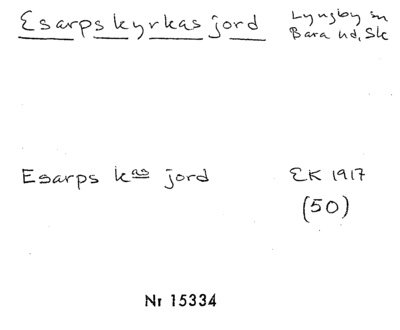 Esarps kyrkas jord
Lyngby sn
Bara hd, Sk
Esarps kas jord
EK 1917
(50)
Nr 15334